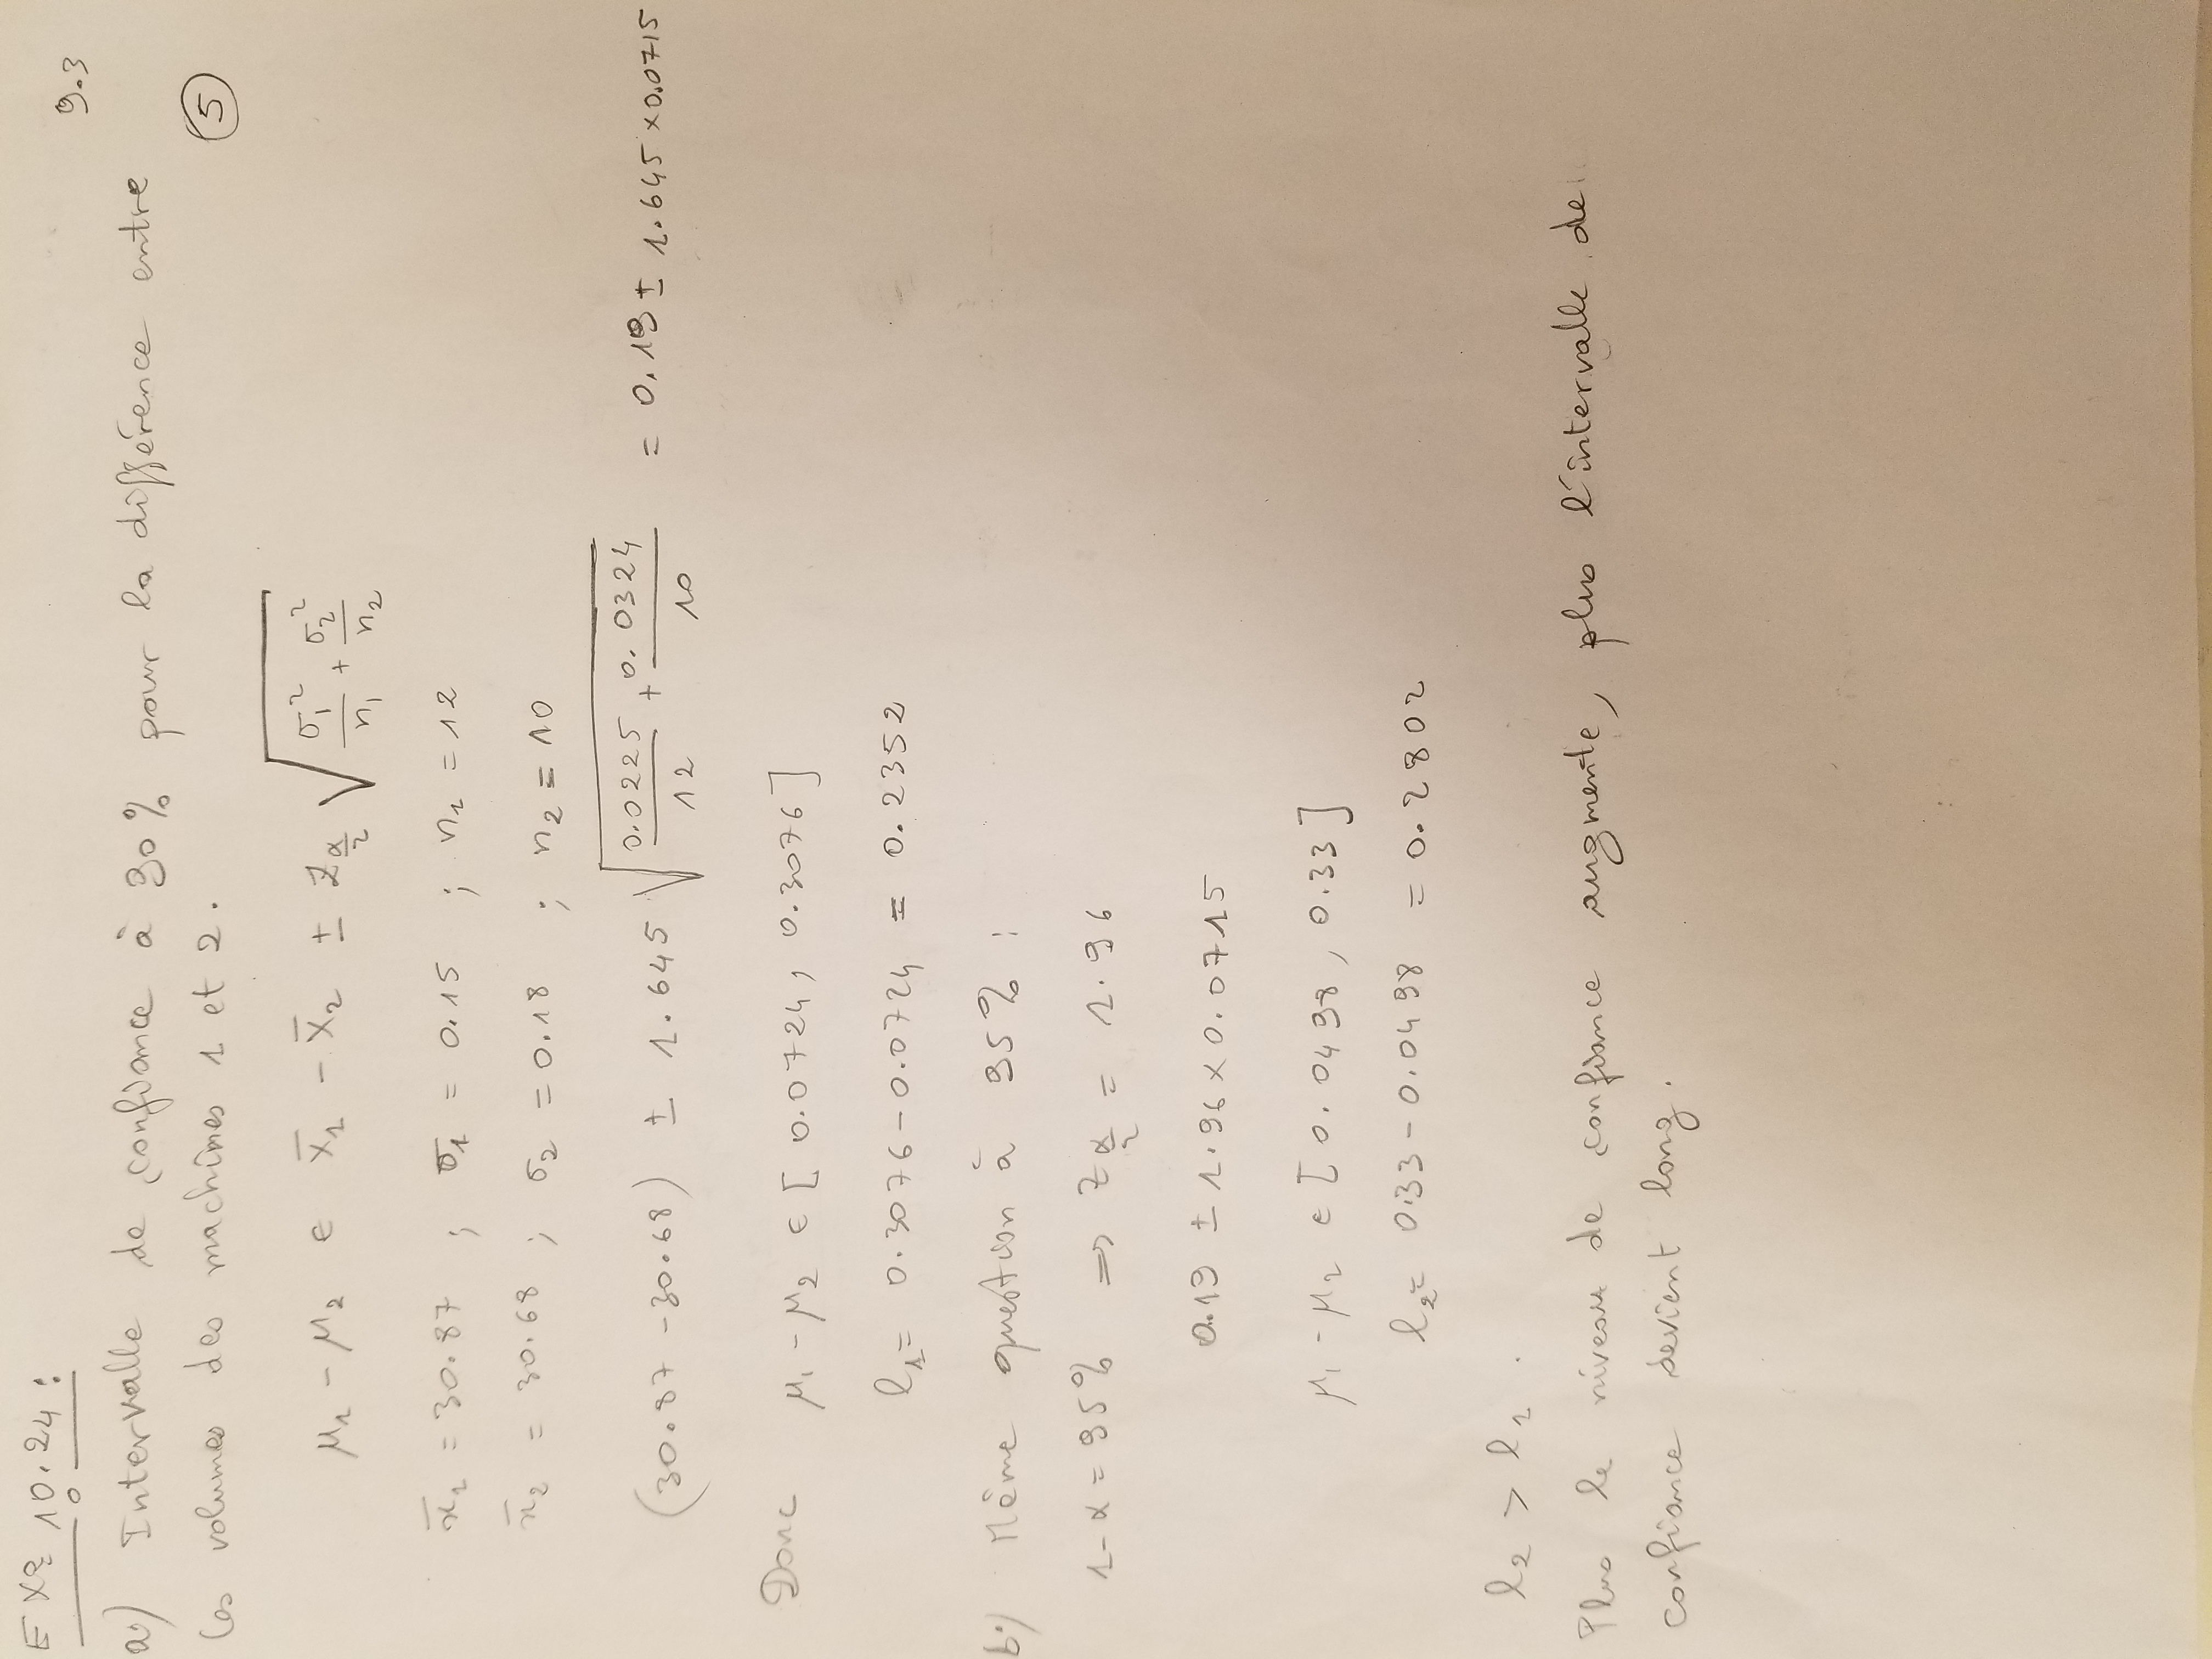 EXº 10.24 :
9.3
a.) Intervalle de confiance à 90% pour la différence entre
les volumes des machines 1 et 2.
5
μ1 - μ2 ∈ X̄1 - X̄2 ± Z_{α/2} √(σ1²/n1 + σ2²/n2)
x̄1 = 30.87 ; σ1 = 0.15 ; n1 = 12
x̄2 = 30.68 ; σ2 = 0.18 ; n2 = 10
(30.87 - 30.68) ± 1.645 √(0.0225/12 + 0.0324/10) = 0.19 ± 1.645 × 0.0715
Donc μ1 - μ2 ∈ [ 0.0724, 0.3076 ]
l1 = 0.3076 - 0.0724 = 0.2352
b.) Même question à 95% :
1 - α = 95% => Z_{α/2} = 1.96
0.19 ± 1.96 × 0.0715
μ1 - μ2 ∈ [ 0.0498, 0.33 ]
l2 = 0.33 - 0.0498 = 0.2802
l2 > l1 .
Plus le niveau de confiance augmente, plus l'intervalle de
confiance devient long.